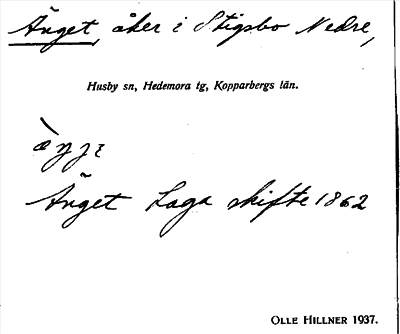 Änget, åker i Stigsbo Nedre,
Husby sn, Hedemora tg, Kopparbergs län.
Änget Laga skifte 1862
OLLE HILLNER 1937.